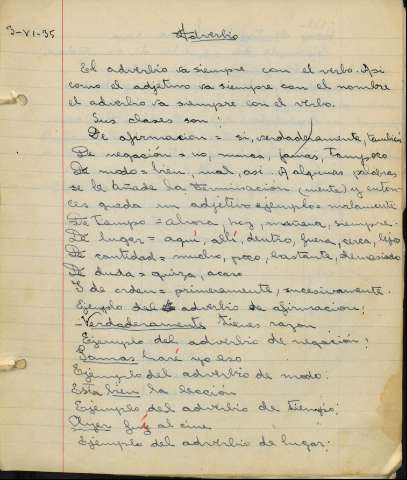 3-VI-35
Adverbio
El adverbio va siempre con el verbo. Asi
como el adjetivo va siempre con el nombre
el adverbio va siempre con el verbo.
Sus clases son:
De afirmacion = si, verdaderamente, tambien
De negación = no, nunca, jamas, tampoco
De modo = bien, mal, asi. A algunas palabras
se le añade la terminación (mente) y enton-
ces queda un adjetivo ejemplo = malamente
De tiempo = ahora, hoy, mañana, siempre.
De lugar = aquí, allí, dentro, fuera, cerca, lejos
De cantidad = mucho, poco, bastante, demasiado
De duda = quiza, acaso
I de orden = primeramente, sucesivamente.
Ejemplo del adverbio de afirmacion:
-Verdaderamente tienes razon
Ejemplo del adverbio de negación:
Jamas haré yo eso
Ejemplo del adverbio de modo:
Esta bien la lección
Ejemplo del adverbio de tiempo:
Ayer fuí al cine
Ejemplo del adverbio de lugar: